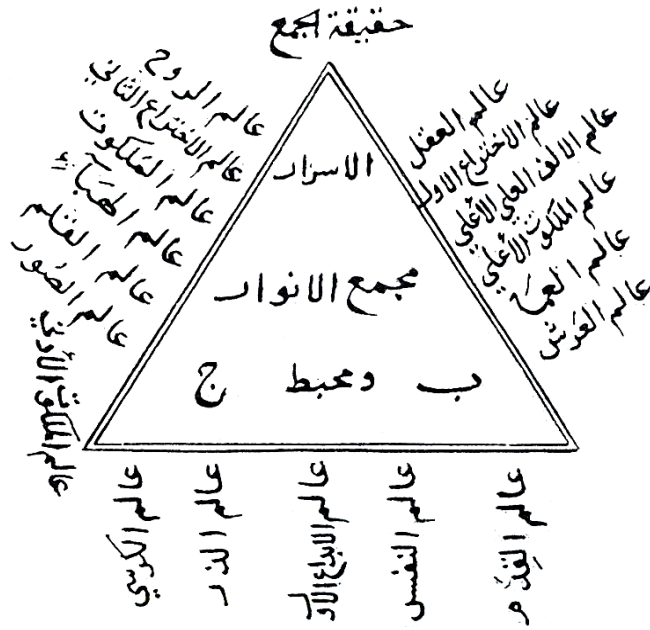 حقيقة الجمع
عالم العقل
عالم الاختراع الاول
عالم الالف العلي الأعلي
عالم الملكوت الأعلي
عالم العماء
عالم العرش
عالم الروح
عالم الاختراع الثاني
عالم الملكوت
عالم الهباء
عالم القلم
عالم الصور
الاسرار
مجمع الانوار
ب ومحبط ج
عالم القدم
عالم النفس
عالم الابداع
عالم الذر
عالم الكرسي